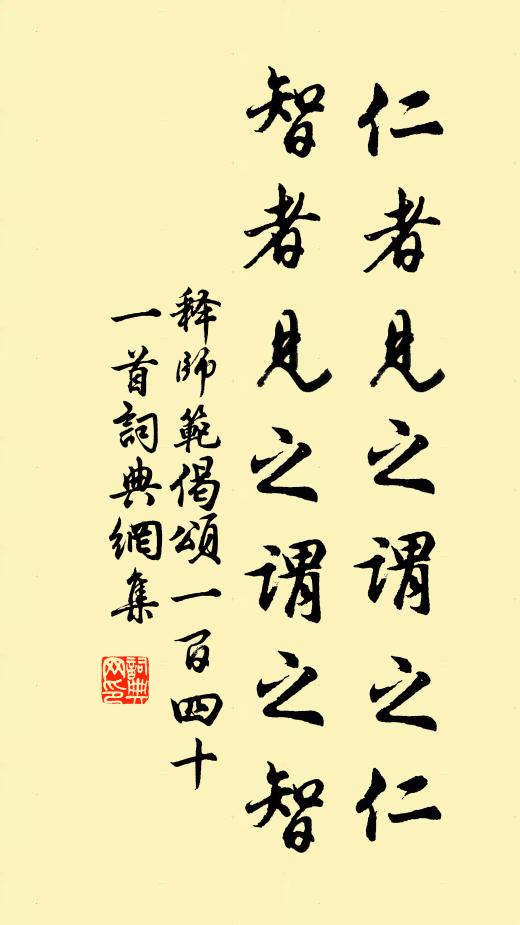 仁者見之謂之仁
智者見之謂之智
释師範偈頌一百四十
一首詞典網集
詞典网印